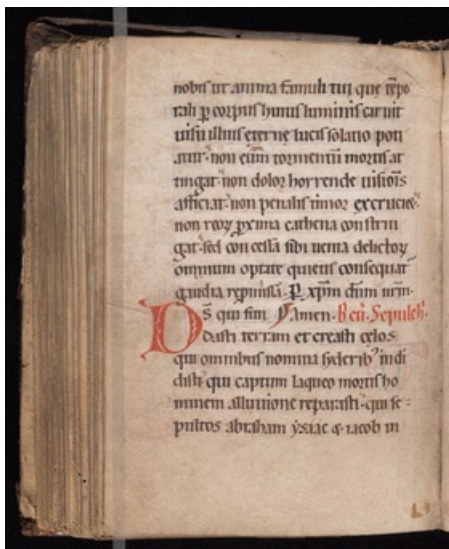 nobis ut anima famuli tui que tēpo
rali p corpus huius luminis caruit
uisu illius eterne lucis solatio poti
atur. non eum tormentū mortis at
tingat. non dolor horrende uisiois
afficiat. non penalis timor excruciet.
non reor pxima cathena constrin
gat. sed concessa sibi uenia delictor
omnium optate quietis consequat
gaudia repmissa. P xp̄m dn̄m nr̄m.
Ds̄ qui fun Amen. Ben. Sepulch.
dasti terram et creasti celos.
qui omnibus nomina syderib' indi
disti. qui captum laqueo mortis ho
minem allutione reparasti. qui se
pultos abraham ysaac & iacob in